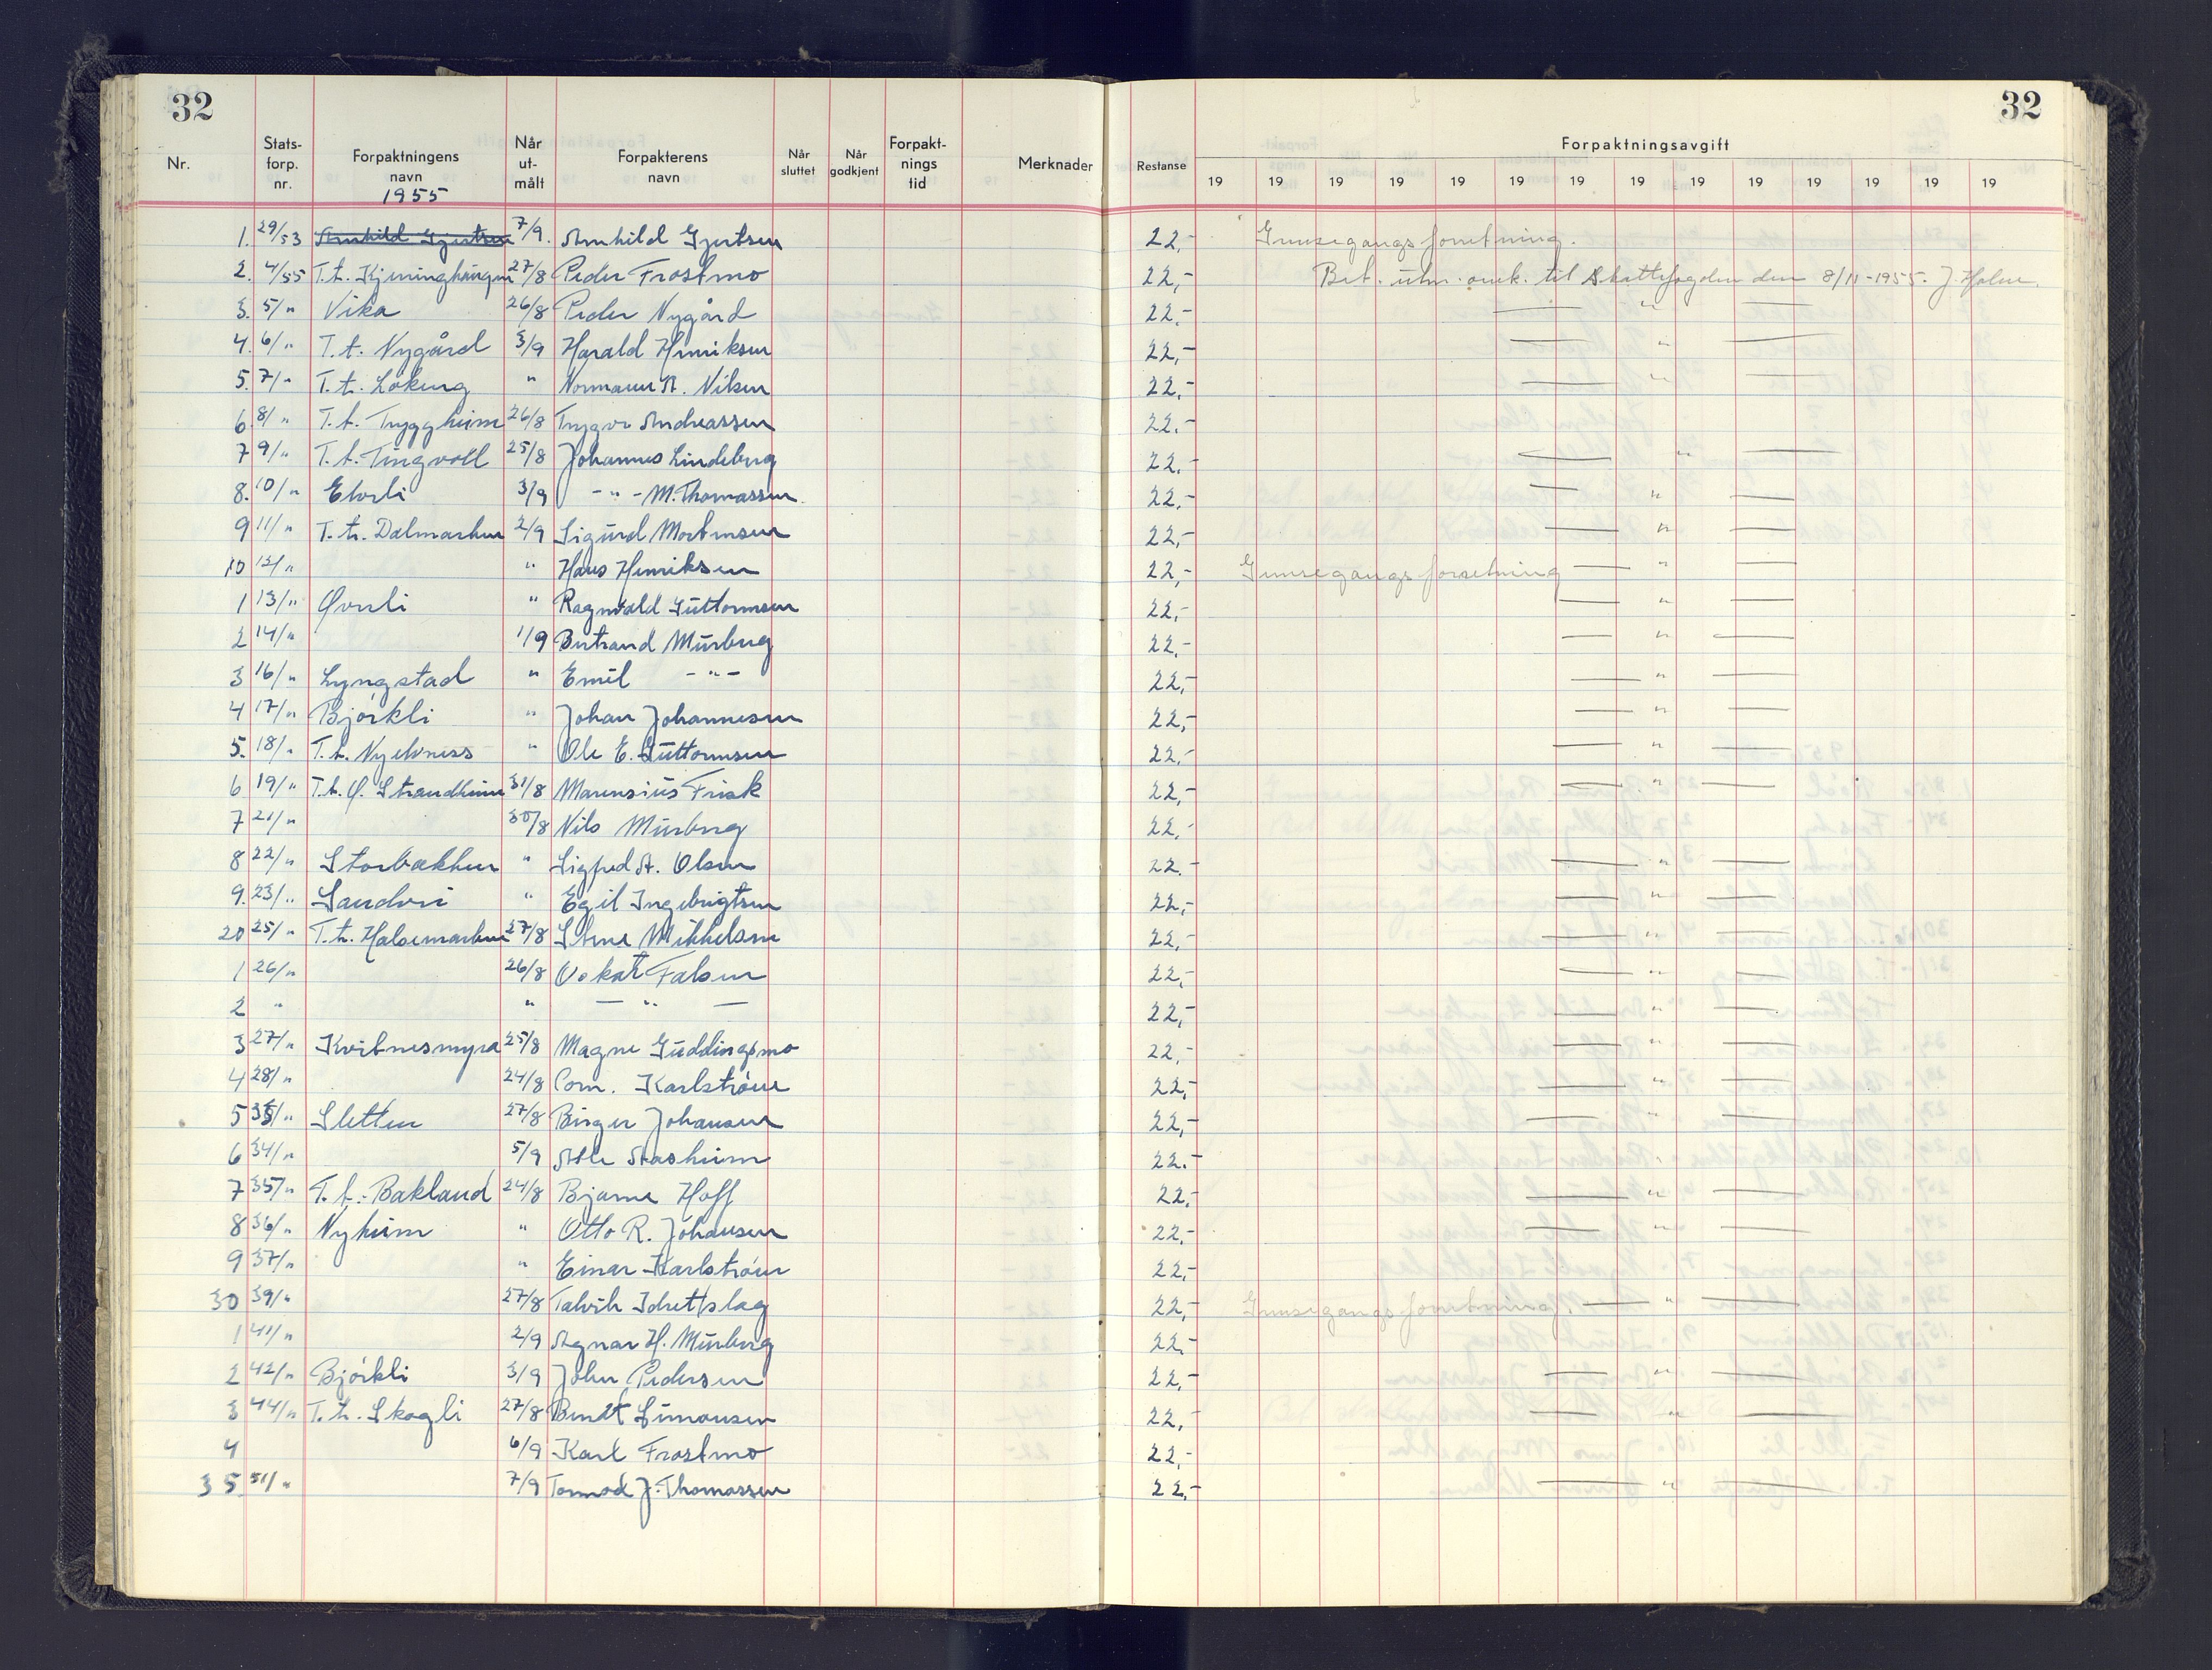 32
32
Nr. Stats-forp. nr. Forpaktningens navn Når ut-målt Forpakterens navn Når sluttet Når godkjent Forpakt-nings tid Merknader Restanse Forpaktningsavgift
19 19 19 19 19 19 19 19 19 19 19 19 19 19
1955
1. 29/53 Arnhild Gjertsen 7/9. Arnhild Gjertsen 22,- Grensegangsforretning.
2. 4/55 T.t. 27/8 Peder Frostmo 22,- Bet. utm. omk. til Skattefogden den 8/11-1955. J. Holm.
3. 5/" Vika 26/8 Peder Nygård 22.- — " —
4. 6/" T.t. Nygård 3/9 Harald Henriksen 22,- — " —
5. 7/" T.t. Løkeng " Normann A. Nilsen 22,- — " —
6. 8/" T.t. Tryggheim 26/8 Trygve Andreassen 22.-
7 9/" T.t. Tingvoll 25/8 Johannes Lindeberg 22.- — " —
8. 10/" Elveli 3/9 - " - M. Thomassen 22,- — " —
9 11/" T.t. Dalmarken 2/9 Sigurd Mortensen 22,- — " —
10 12/" " Hans Henriksen 22,- Grensegangsforretning — " —
1 13/" Øvreli " Ragnvald Guttormsen 22,- — " —
2 14/" 1/9 Bertrand Murberg 22,- — " —
3 16/" Lyngstad " Emil - " - 22,- — " —
4 17/" Bjørkli " Johan Johannesen 22,- — " —
5. 18/" T.t. Nyelvness " Ole E. Guttormsen 22,- — " —
6 19/" T.t. Ø. Strandheim 31/8 Marensius Frisk 22,- — " —
7 21/" 30/8 Nils Murberg 22,-
8 22/" Storbakken " Sigfred A. Olsen 22.- — " —
9. 23/" Sandvei " Egil Ingebrigtsen 22,- — " —
20 25/" T.t. Halsemarken 27/8 Sterne Mikkelsen 22,- — " —
1 26/" 26/8 Oskar Falsen 22,- — " —
2 " " — " — 22,- — " —
3 27/" Kvitnesmyra 25/8 Magne Guddingsmo 22,- — " —
4 28/" 24/8 Corn. Karlstrøm 22,- — " —
5 " Sletten 27/8 Birger Johansen 22,- — " —
6 34/" 5/9 Atle Aasheim 22.- "
7 35/" T.t. Bakland 24/8 Bjarne Hoff 22,- — " —
8 36/" Nyheim " Otto R. Johansen 22,- — " —
9 37/" " Einar Karlstrøm 22,-
30 39/" 27/8 Talvik Idrettslag 22,- Grensegangsforretning. — " —
1 41/" 2/9 Agnar H. Murberg 22,-
2 42/" Bjørkli 3/9 John Pedersen 22,- — " —
3 44/" T.t. Skogli 27/8 Bendt Simonsen 22,- — " —
4 6/9 Karl Frostmo 22,-
35 51/" 7/9 Tormod J. Thomassen 22,- — " —